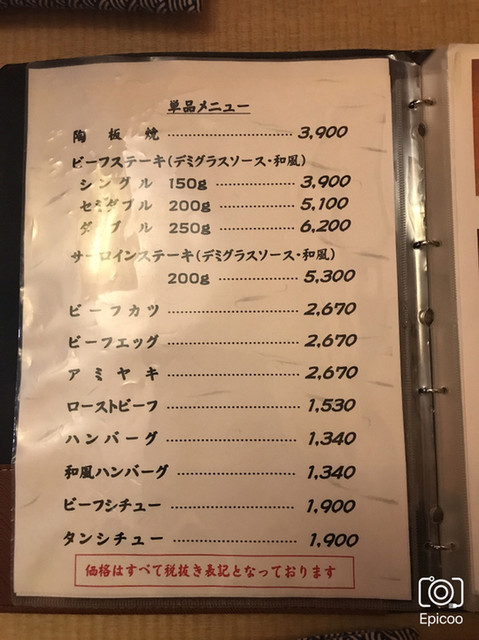 単品メニュー
陶板焼 3,900
ビーフステーキ(デミグラスソース・和風)
シングル 150g 3,900
セミダブル 200g 5,100
ダブル 250g 6,200
サーロインステーキ(デミグラスソース・和風)
200g 5,300
ビーフカツ 2,670
ビーフエッグ 2,670
アミヤキ 2,670
ローストビーフ 1,530
ハンバーグ 1,340
和風ハンバーグ 1,340
ビーフシチュー 1,900
タンシチュー 1,900
価格はすべて税抜き表記となっております
Epicoo